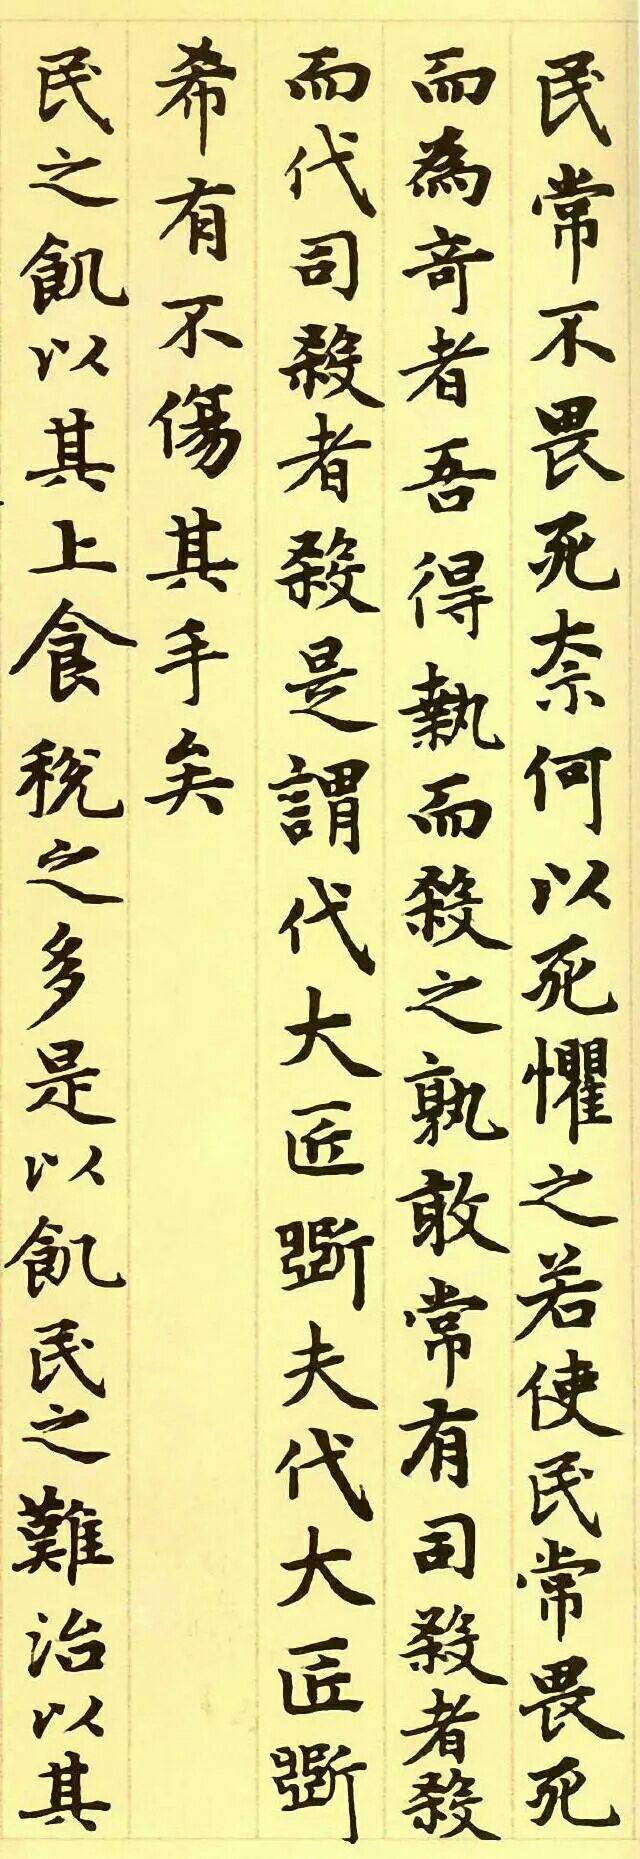 民常不畏死奈何以死懼之若使民常畏死
而為奇者吾得執而殺之孰敢常有司殺者殺
而代司殺者殺是謂代大匠斲夫代大匠斲
希有不傷其手矣
民之飢以其上食稅之多是以飢民之難治以其